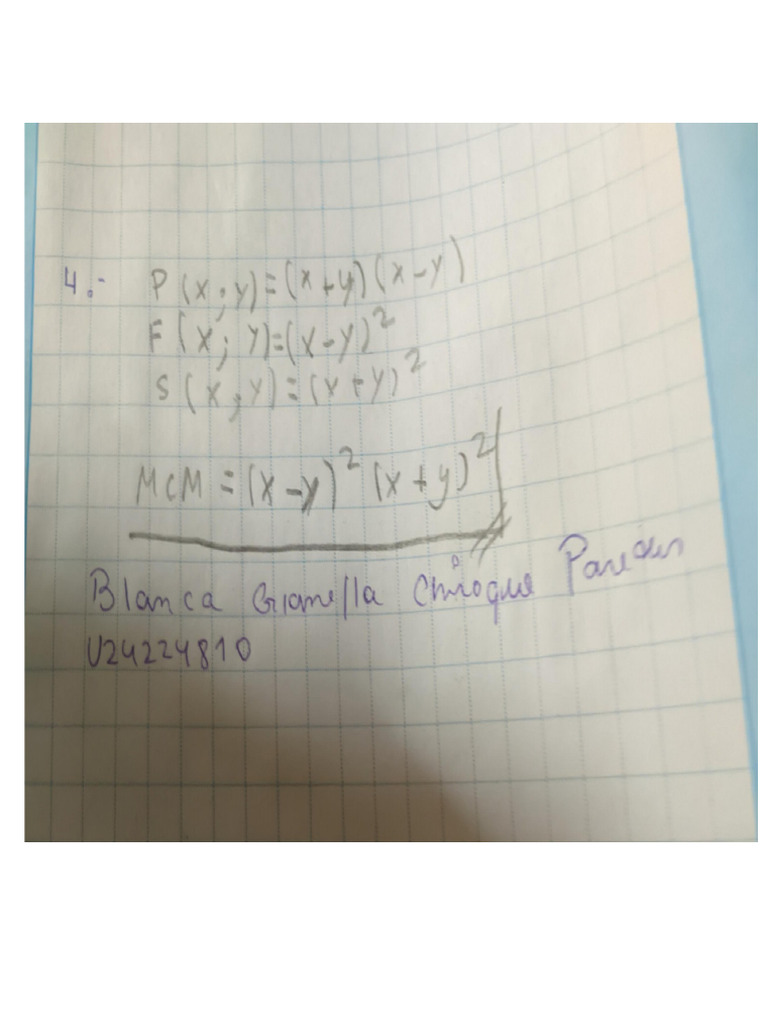 4.- P(x;y)=(x+y)(x-y)
F(x;y)=(x-y)²
S(x,y)=(x+y)²
MCM = (x-y)² (x+y)²
Blanca Gianella Chiroque
U24224810